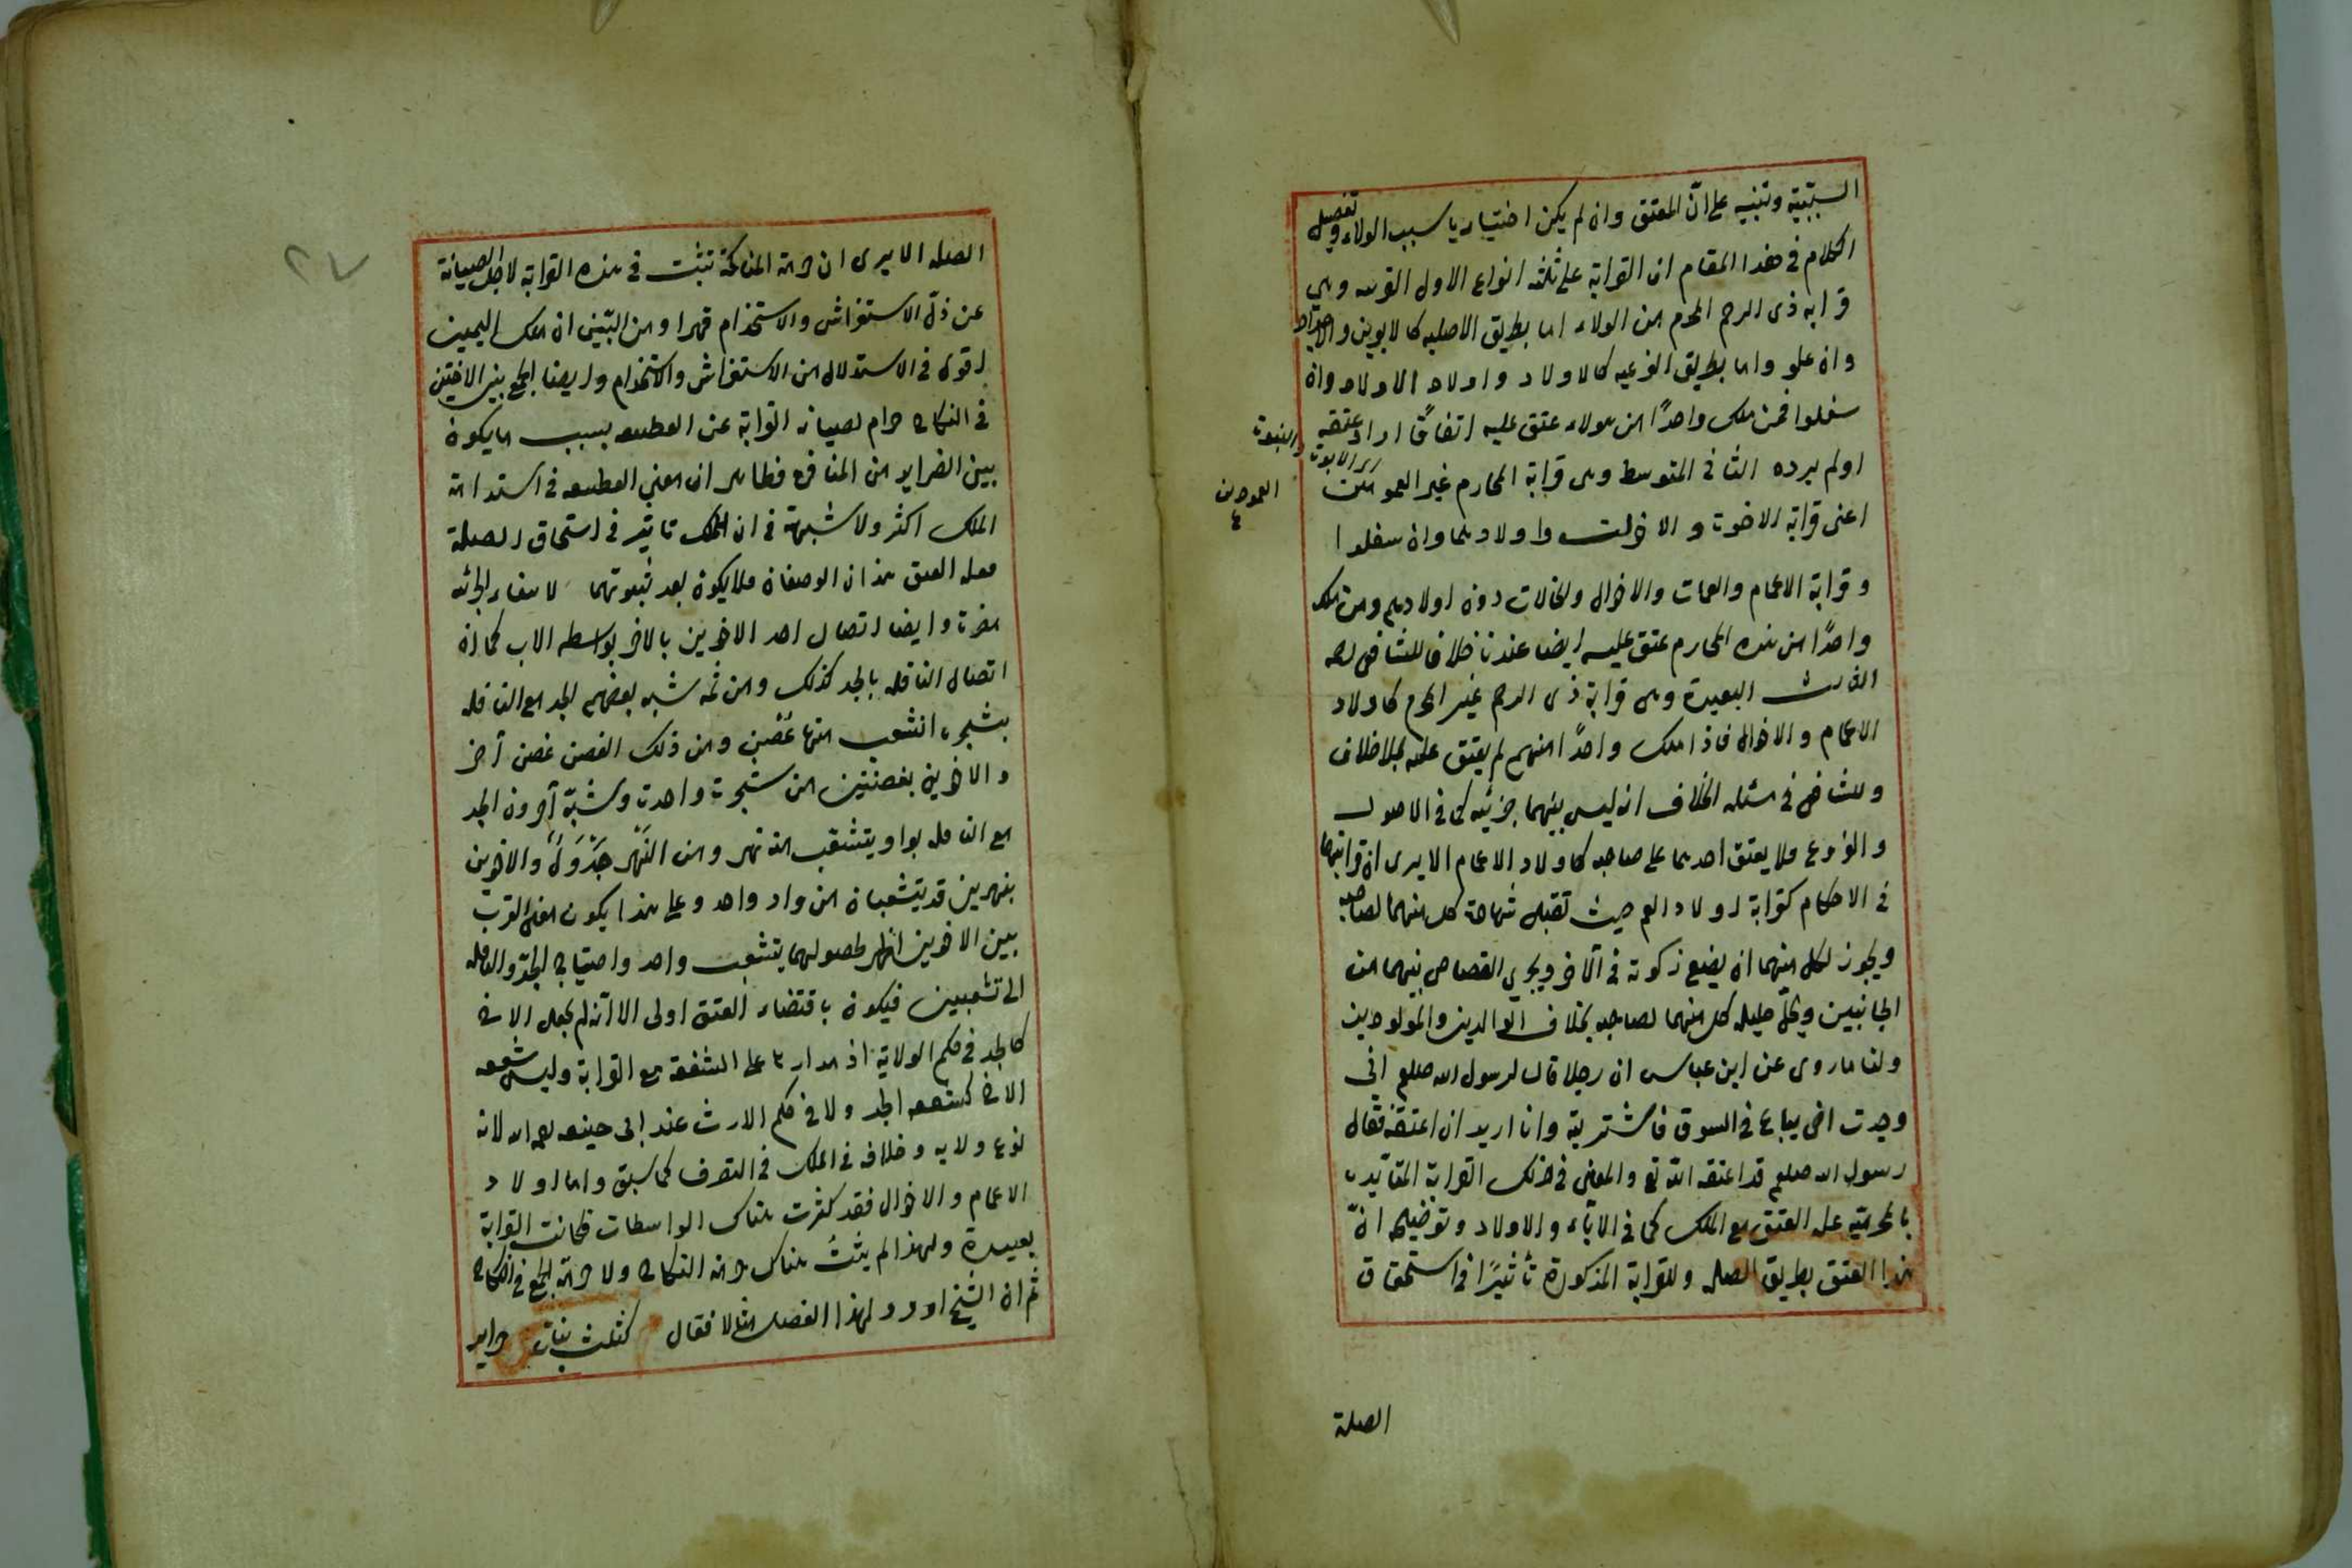 السببية وتنبيه على ان المعتق وان لم يكن اختياريا سبب الولاء وتفصيل
الكلام في هذا المقام ان القرابة على ثلثه انواع الاول القريبه وهي
قرابه ذى الرحم المحرم من الولاء اما بطريق الاصليه كالابوين والاجداد
وان علو واما بطريق الفرعيه كالاولاد واولاد الاولاد وان
سفلوا فمن ملك واحدًا من هولاء عتق عليه اتفاقًا اراد عتقه
اولم يرده الثانى المتوسط وهى قرابة المحارم غير العمودين
اى الابوت والبنوت
العمودين
اعنى قرابة الاخوت والاخوات واولادهما وان سفلوا
وقرابة الاعمام والعمات والاخوال والخالات دون اولادهم ومن ملك
واحدًا من هذه المحارم عتق عليه ايضا عندنا خلافا للشافعى رحمه
الثالث البعيدة وهى قرابة ذى الرحم غير المحرم كاولاد
الاعمام والاخوال فاذا ملك واحدًا منهم لم يعتق عليه بلا خلاف
وللشافعى في مسئله الخلاف انه ليس بينهما جزئيه كما في الاصول
والفروع فلا يعتق احدهما على صاحبه كاولاد الاعمام الا يرى ان قرابتهما
في الاحكام كقرابة اولاد العم حيث تقبل شهادة كل منهما لصاحبه
ويجوز لكل منهما ان يضع زكوته في الآخر ويجرى القصاص بينهما من
الجانبين ويحل حليله كل منهما لصاحبه بخلاف الوالدين والمولودين
ولنا ما روى عن ابن عباس ان رجلا قال لرسول الله صلعم انى
وجدت اخى يباع في السوق فاشتريته وانا اريد ان اعتقه فقال
رسول الله صلعم قد اعتقه الله تع والمعنى في ذلك القرابة المتأيده
بالمحرميه علة العتق مع الملك كما في الآباء والاولاد وتوضيحه ان
هذا العتق بطريق الصله وللقرابة المذكورة تأثيرًا في استحقاق
الصلة
٢٧
الصله الا يرى ان حرمة المناكحة تثبت في هذه القرابة لاجل الصيانة
عن ذل الاستفراش والاستخدام قهرا ومن البين ان ملك اليمين
اقوى في الاستدلال من الاستفراش والاستخدام وايضا الجمع بين الاختين
في النكاح حرام لصيانة القرابة عن القطيعه بسبب ما يكون
بين الضراير من المنافرة فظاهر ان معنى القطيعه في استدامة
الملك اكثر ولا شبهة في ان للملك تاثير في استحقاق الصلة
فعله العتق هذان الوصفان فلا يكون بعد ثبوتهما لانتفاء الجزئيه
مضرت وايضا اتصال احد الاخوين بالاخر بواسطه الاب كما ان
اتصال النافله بالجد كذلك ومن ثمه شبه بعضهم الجد مع النافله
بشجره انشعب منها غصن ومن ذلك الغصن غصن آخر
والاخوين بغصنين من شجرت واحدت وشبه آخرون الجد
مع النافله بواد يتشعب منه نهر ومن النهر جَدْوَلٌ والاخوين
بنهرين قد يتشعبان من واد واحد وعلى هذا يكون معنى القرب
بين الاخوين اظهر لحصولهما بتشعب واحد واحتياج الجد والنافله
الى تشعبين فيكون باقتضاء العتق اولى الا انه لم يجعل الاخ
كالجد في حكم الولاية اذ مدارها على الشفقة مع القرابة وليس شفقه
الاخ كشفقه الجد ولا في حكم الارث عند ابى حنيفه رحمه الله لانه
نوع ولايه وخلافه في الملك في التصرف كما سبق واما اولاد
الاعمام والاخوال فقد كثرت هناك الواسطات فكانت القرابة
بعيدة ولهذا لم يثبت هناك حرمة النكاح ولا حرمة الجمع في النكاح
ثم ان الشيخ اورد لهذا الفصل مثالا فقال كثلث بنات حراير